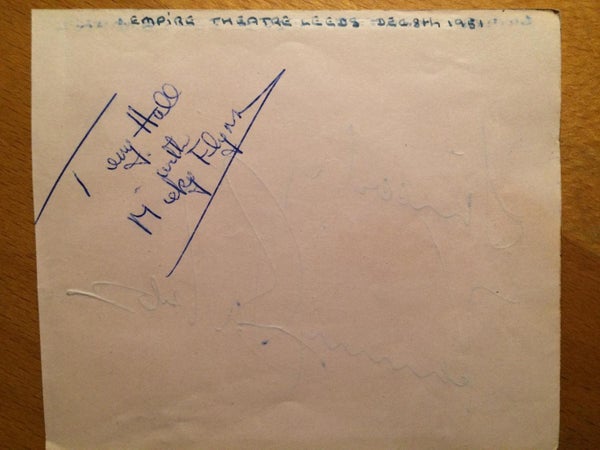 EMPIRE THEATRE LEEDS DEC. 8TH 1951
Terry Hall
with
Micky Flynn